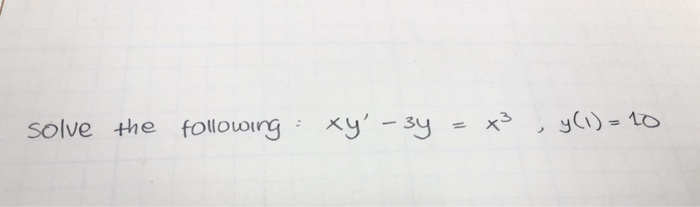 solve the following : xy' - 3y = x³ , y(1) = 10